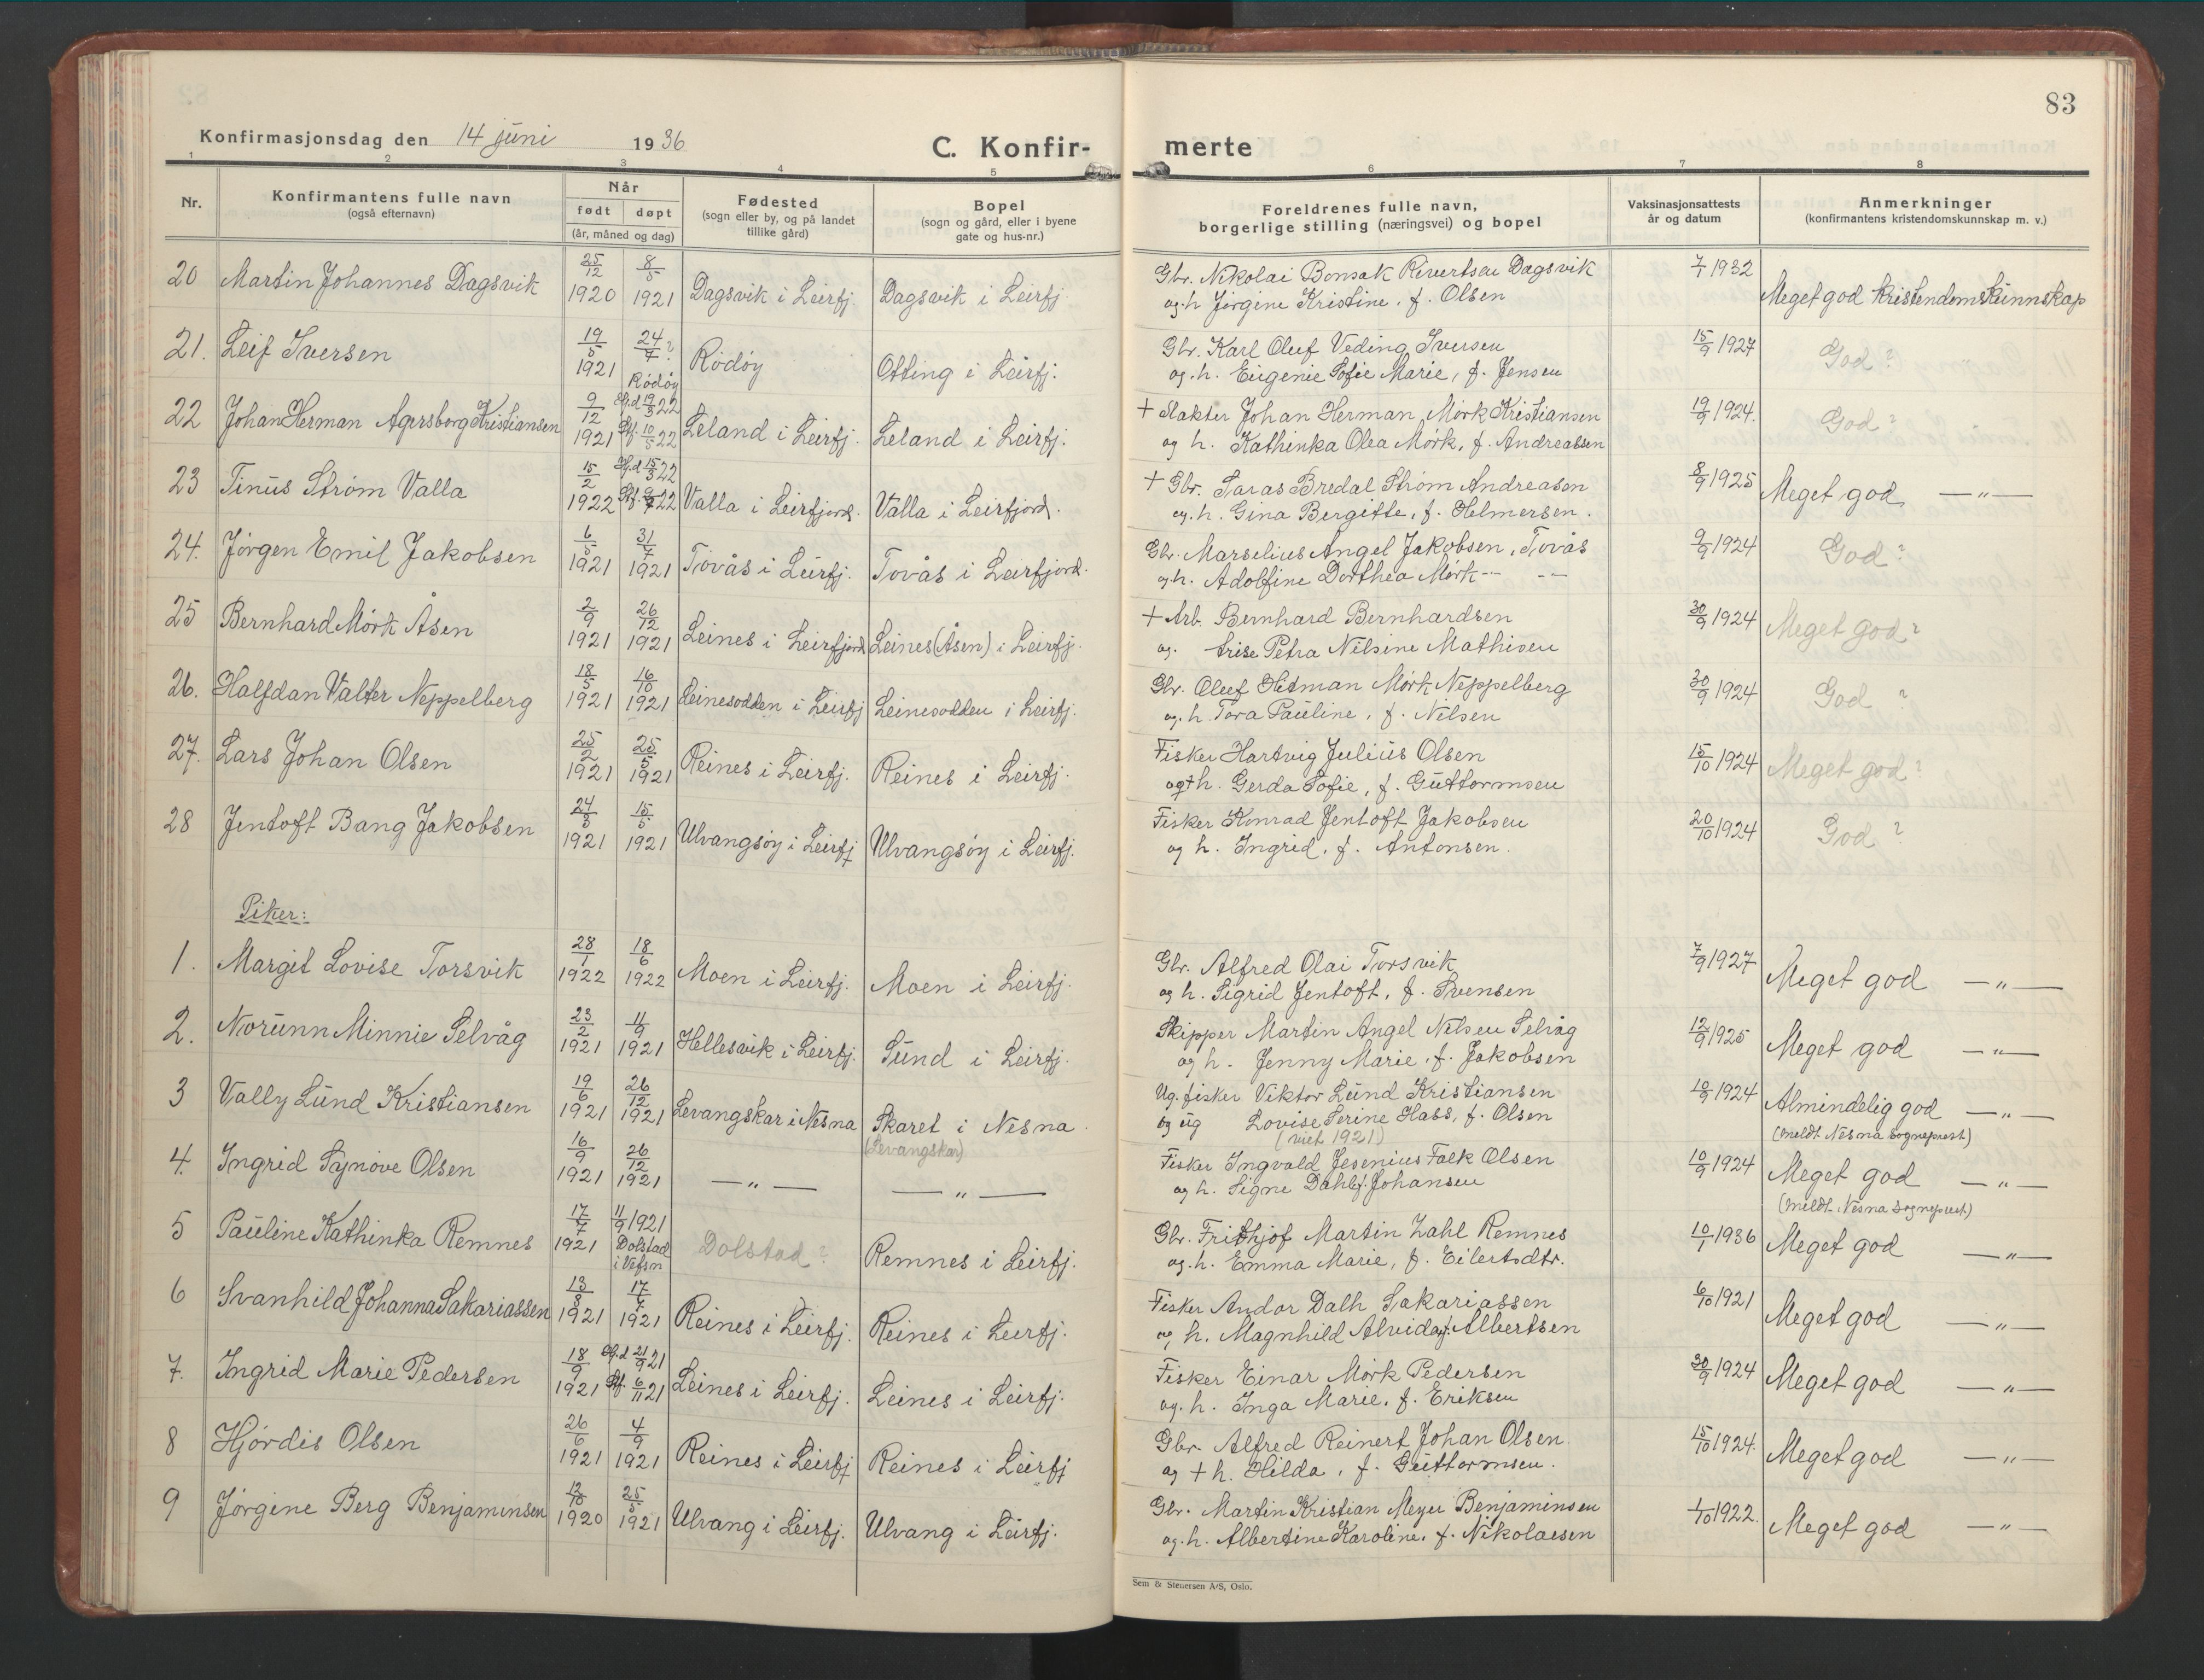 83
Konfirmasjonsdag den 14 juni 1936
C. Konfir-
merte
1 2 3 4 5 6 7 8
Nr.
Konfirmantens fulle navn
(også efternavn)
Når
født døpt
(år, måned og dag)
Fødested
(sogn eller by, og på landet
tillike gård)
Bopel
(sogn og gård, eller i byene
gate og hus-nr.)
Foreldrenes fulle navn,
borgerlige stilling (næringsvei) og bopel
Vaksinasjonsattests
år og datum
Anmerkninger
(konfirmantens kristendomskunnskap m. v.)
20 Martin Johannes Dagsvik 25/12 1920 8/5 1921 Dagsvik i Leirfj. Dagsvik i Leirfj. Gbr. Nikolai Bonsak Sivertsen Dagsvik 7/1 1932 Meget god kristendomskunnskap
og h. Jørgine Kristine, f. Olsen
21. Leif Iversen 19/5 1921 24/7 ? Rødøy Rødøy Otting i Leirfj. Gbr. Karl Oluf Veding Iversen 15/9 1927 God ?
og. h. Eugenie Sofie Marie, f. Jensen
22 Johan Herman Agersborg Kristiansen 9/12 1921 Hj.d 19/3 22 Stf. 10/5 22 Leland i Leirfj. Leland i Leirfj. + Slakter Johan Herman Mørk Kristiansen 19/9 1924. God ?
og h. Kathinka Olea Mørk, f. Andreassen
23 Tinus Strøm Valla 15/2 1922 Hj.d 15/3 22 Stf. 22 Valla i Leirfjord. Valla i Leirfjord. + Gbr. Saras Bredal Strøm Andreasen 8/9 1925 Meget god —„—
og. h. Gina Bergitte, f. Helmersen.
24. Jørgen Emil Jakobsen 6/5 1921 31/7 1921 Tovås i Leirfj. Tovås i Leirfjord. Gbr. Marselius Angel Jakobsen, Tovås 9/9 1924 God ?
og h. Adolfine Dorthea Mørk -- --
25 Bernhard Mørk Åsen 2/9 1921 26/12 1921 Leines i Leirfjord Leines (Åsen) i Leirfj. + Arb. Bernhard Bernhardsen 30/9 1924 Meget god ?
og. Petra Nilsine Mathisen
26. Halfdan Valter Neppelberg 18/5 1921 16/10 1921 Leinesodden i Leirfj Leinesodden i Leirfj. Gbr. Oluf Hitman Mørk Neppelberg 30/9 1924 God ?
og. h. Tora Pauline, f. Nilsen
27. Lars Johan Olsen 25/2 1921 25/5 1921 Reines i Leirfj. Reines i Leirfj. Fisker Hartvig Julius Olsen 15/10 1924 Meget god ?
og + h. Gerda Sofie, f. Guttormsen
28 Jentoft Bang Jakobsen 24/3 1921 15/5 1921 Ulvangsøy i Leirfj Ulvangsøy i Leirfj. Fisker Konrad Jentoft Jakobsen 20/10 1924 God ?
og h. Ingrid, f. Antonsen.
Piker:
1. Margit Lovise Torsvik 28/1 1922 18/6 1922 Moen i Leirfj. Moen i Leirfj. Gbr. Alfred Olai Torsvik 7/9 1927 Meget god —„—
og h. Sigrid Jentoft, f. Svensen
2. Norunn Minnie Selvåg 23/2 1921 11/9 1921 Hellesvik i Leirfj. Sund i Leirfj. Skipper Martin Angel Nilsen Selvåg 12/9 1925 Meget god —„—
og h. Jenny Marie, f. Jakobsen
3 Vally Lund Kristiansen 19/6 1921 26/12 1921 Levangskar i Nesna Skaret i Nesna (Levangskar) Ug. fisker Viktor Lund Kristiansen 10/9 1924 Almindelig god —„—
og ug Lovise Serine Hass, f. Olsen (viet 1921) (meldt Nesna sogneprest)
4. Ingrid Synøve Olsen 16/9 1921 26/12 1921 —„— —„— Fisker Ingvald Jesenius Falk Olsen 10/9 1924 Meget god —„—
og h. Signe Dahl, f. Johansen (meldt Nesna sogneprest)
5 Pauline Kathinka Remnes 17/7 1921 11/9 1921 Dolstad i Vefsn Dolstad ? Remnes i Leirfj. Gbr. Frithjof Martin Zahl Remnes 10/1 1936 Meget god —„—
og. h. Emma Marie, f. Eilertsdtr.
6 Svanhild Johanna Sakariassen 13/3 1921 17/7 1921 Reines i Leirfj. Reines i Leirfj. Fisker Andor Dalh Sakariassen 6/10 1921 Meget god —„—
og h. Magnhild Alvida, f. Albertsen
7. Ingrid Marie Pedersen 18/9 1921 Hj.d 21/9 21 Stf. 6/11 21 Leines i Leirfj. Leines i Leirfj. Fisker Einar Mørk Pedersen 30/9 1924 Meget god —„—
og. h. Inga Marie, f. Eriksen
8 Hjørdis Olsen 26/6 1921 4/9 1921 Reines i Leirfj Reines i Leirfj Gbr. Alfred Reinert Johan Olsen 15/10 1924. Meget god —„—
og + h. Hilda, f. Guttormsen.
9 Jørgine Berg Benjaminsen 12/10 1920 25/5 1921 Ulvang i Leirfj. Ulvang i Leirfj. Gbr. Martin Kristian Meyer Benjaminsen 1/10 1922. Meget god —„—
og. h. Albertine Karoline, f. Nikolaisen
Sem & Stenersen A/S, Oslo.